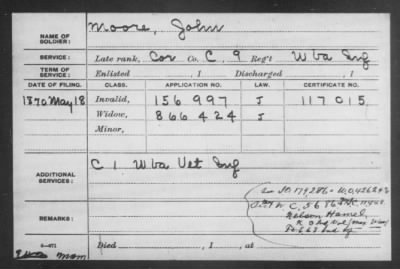 NAME OF SOLDIER: Moore, John
SERVICE: Late rank, Cor Co. C, 9 Reg't W Va Inf
TERM OF SERVICE: Enlisted , 1 Discharged , 1
DATE OF FILING. CLASS. APPLICATION NO. LAW. CERTIFICATE NO.
1870 May 18 Invalid, 156 997 J 117 015
Widow, 866 424 J
Minor,
ADDITIONAL SERVICES: C 1 W Va Vet Inf
REMARKS:
Nelson Hamel
3—671
Died , 1 , at